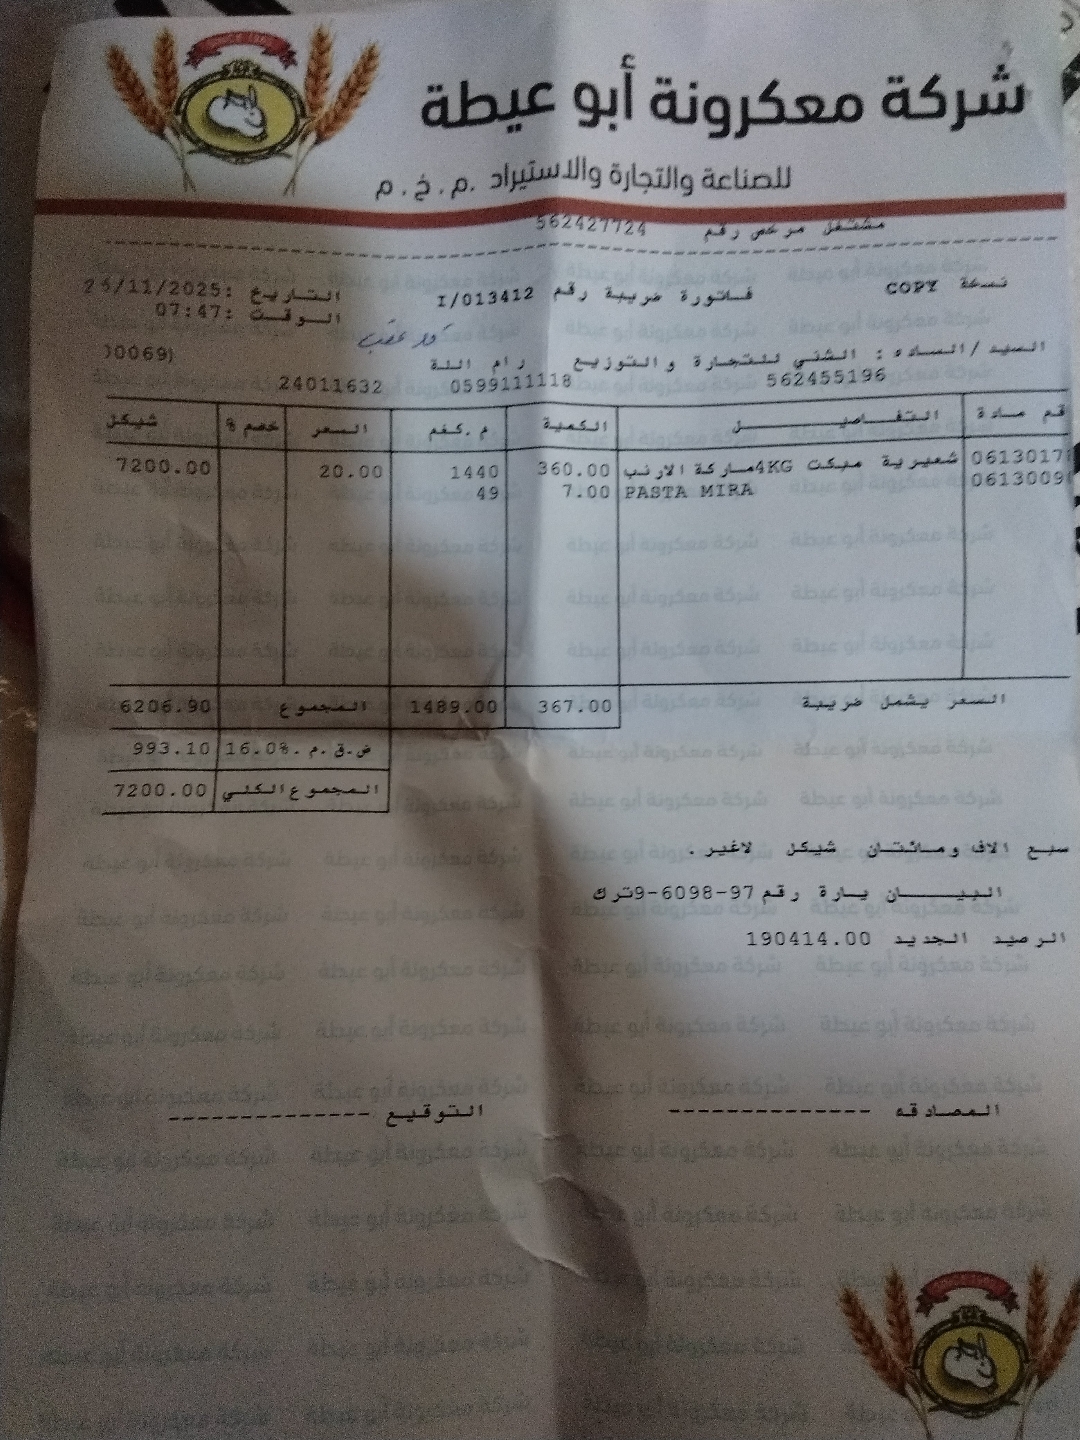 شركة معكرونة أبو عيطة
للصناعة والتجارة والاستيراد .م.خ.م
مشتغل مرخص رقم 562427724
نسخة COPY فاتورة ضريبة رقم I/013412 التاريخ :25/11/2025
الوقت :07:47
السيد/السادة : الشني للتجارة والتوزيع رام الله (0069
562455196 0599111118 24011632
قم مادة التفاصيل الكمية م.كغم السعر خصم % شيكل
0613017 شعيرية مبكت 4KG ماركة الارنب 360.00 1440 20.00 7200.00
0613009 PASTA MIRA 7.00 49
السعر يشمل ضريبة 367.00 1489.00 المجموع 6206.90
ض.ق.م .16.0% 993.10
المجموع الكلي 7200.00
سبع الاف ومائتان شيكل لاغير .
البيان يارة رقم 97-6098-9ترك
الرصيد الجديد 190414.00
المصادقه -------------- التوقيع --------------